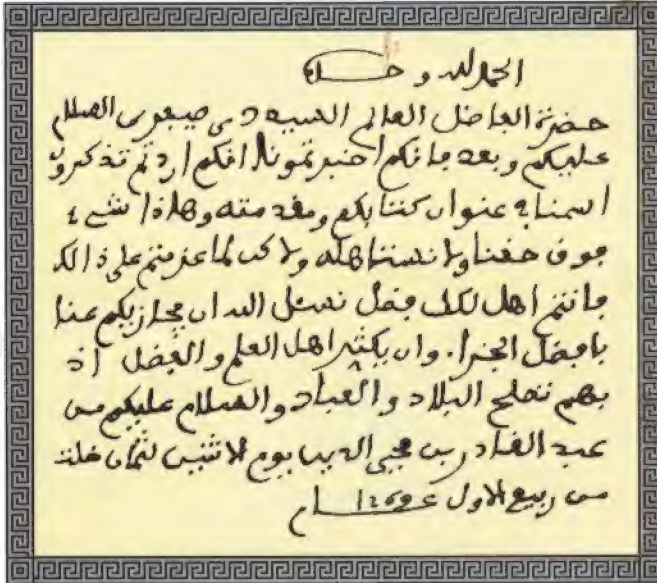 الحمد لله وحده
حضرة الفاضل العالم السيد دى صيغرى السلام
عليكم وبعد فانكم اخبرتمونا انكم اردتم تذكرون
اسمنا في عنوان كتابكم ومقدمته وهاذا الشيء
فوق حقنا ولا نستاهله ولا كن لما عزمتم على ذالك
فانتم اهل لكل فضل نسئل الله ان يجازيكم عنا
بافضل الجزاء. وان يكثر اهل العلم والفضل اذ
بهم تصلح البلاد والعباد والسلام عليكم من
عبد القادر بن محيى الدين يوم الاثنين لثمان خلت
من ربيع الاول عام